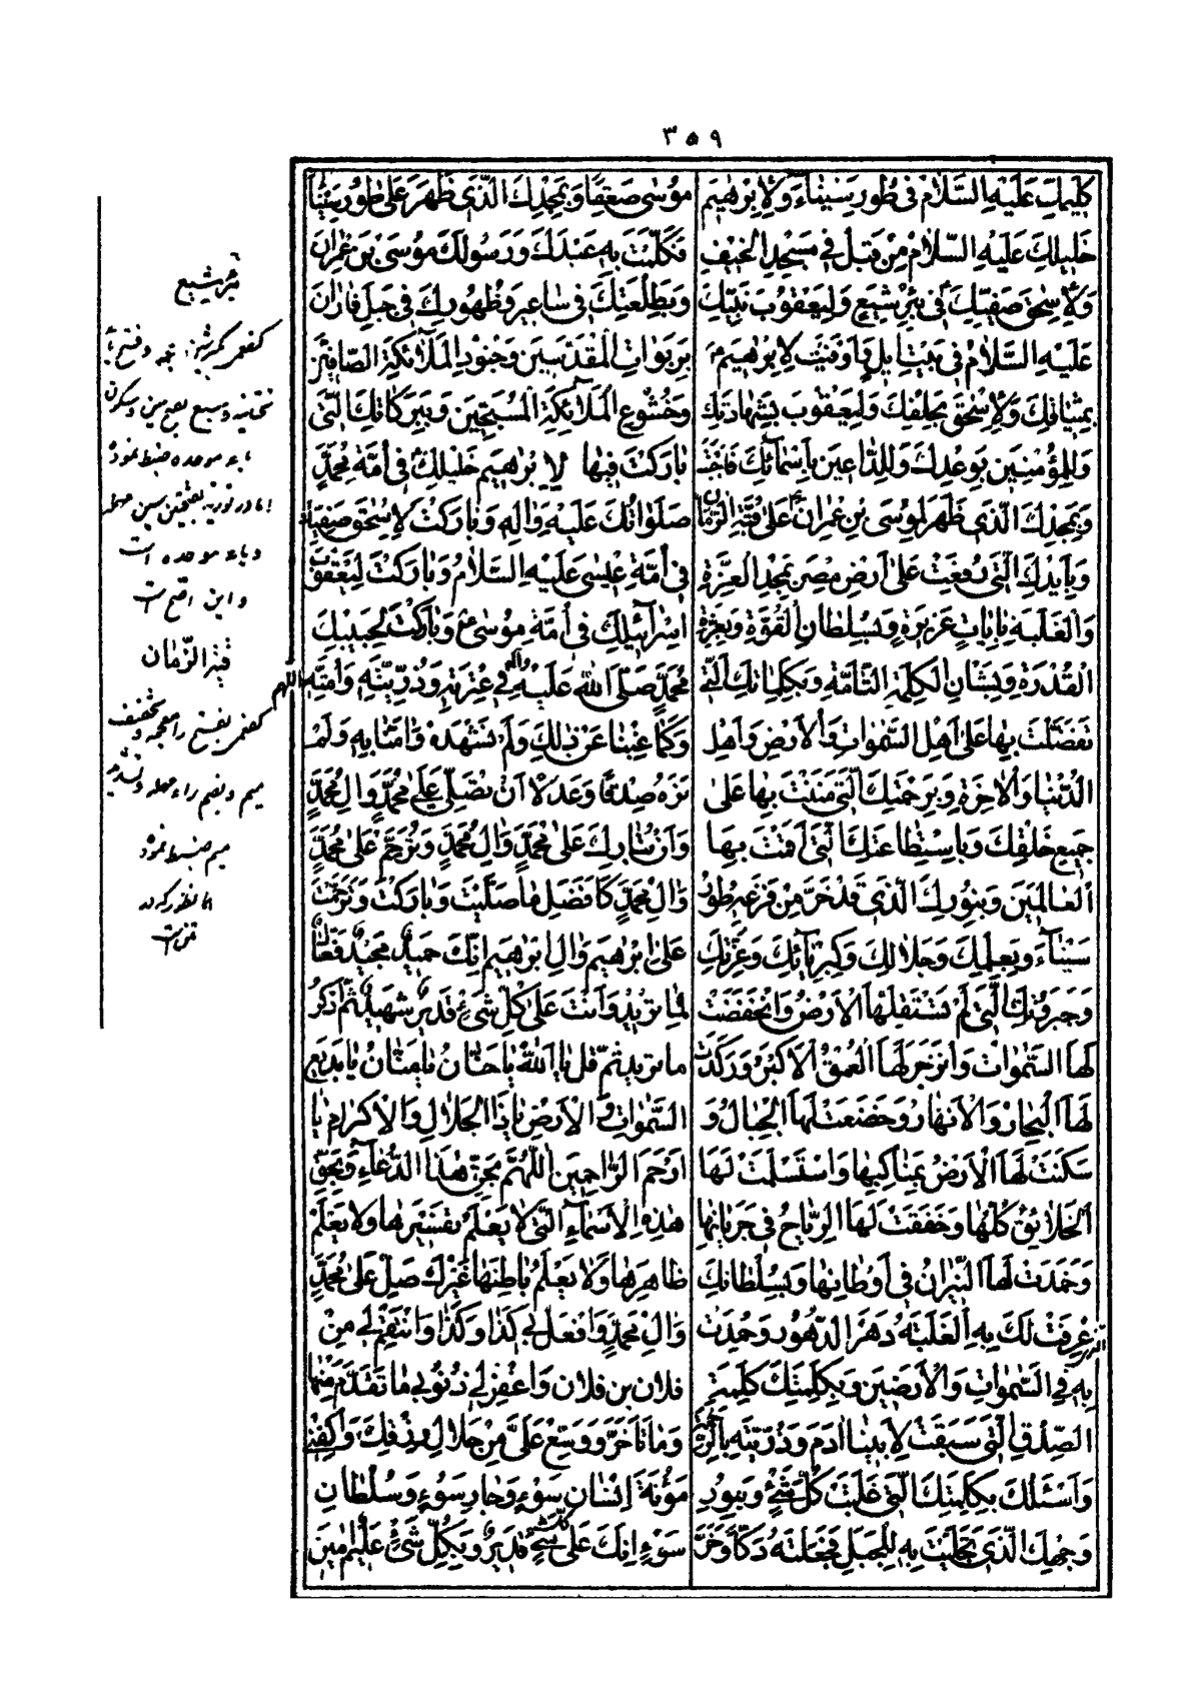 ٣٥٩
كَليمِكَ عَلَيْهِ السَّلامُ في طُورِ سَيْناءَ وَلِاِبْرهيمَ
خَليلِكَ عَلَيْهِ السَّلامُ مِنْ قَبْلُ في مَسْجِدِ الْخَيْفِ
وَلِاِسْحقَ صَفِيِّكَ في بِئْرِ شِيَعٍ وَلِيَعْقُوبَ نَبِيِّكَ
عَلَيْهِ السَّلامُ في بَيْتِ ايلٍ وَاَوْفَيْتَ لِاِبْرهيمَ
بِميثاقِكَ وَلِاِسْحقَ بِحَلْفِكَ وَلِيَعْقُوبَ بِشَهادَتِكَ
وَلِلْمُؤْمِنينَ بِوَعْدِكَ وَلِلدّاعينَ بِاَسْمائِكَ فَاَجَبْتَ
وَبِمَجْدِكَ الَّذي ظَهَرَ لِمُوسَى بْنِ عِمْرانَ عَلى قُبَّةِ الرُّمّانِ
وَبِاَيْدِكَ الَّتي رُفِعَتْ عَلى اَرْضِ مِصْرَ بِمَجْدِ الْعِزَّةِ
وَالْغَلَبَةِ بِاياتٍ عَزيزَةٍ وَبِسُلْطانِ الْقُوَّةِ وَبِعِزَّةِ
الْقُدْرَةِ وَبِشَاْنِ الْكَلِمَةِ التّامَّةِ وَبِكَلِماتِكَ الَّتي
تَفَضَّلْتَ بِها عَلى اَهْلِ السَّمواتِ وَالْاَرْضِ وَاَهْلِ
الدُّنْيا وَالْاخِرَةِ وَبِرَحْمَتِكَ الَّتي مَنَنْتَ بِها عَلى
جَميعِ خَلْقِكَ وَبِاسْتِطاعَتِكَ الَّتي اَقَمْتَ بِهَا
الْعالَمينَ وَبِنُورِكَ الَّذي قَدْ خَرَّ مِنْ فَزَعِهِ طُورُ
سَيْناءَ وَبِعِلْمِكَ وَجَلالِكَ وَكِبْرِيائِكَ وَعِزَّتِكَ
وَجَبَرُوتِكَ الَّتي لَمْ تَسْتَقِلَّهَا الْاَرْضُ وَانْخَفَضَتْ
لَهَا السَّمواتُ وَانْزَجَرَ لَهَا الْعُمْقُ الْاَكْبَرُ وَرَكَدَتْ
لَهَا الْبِحارُ وَالْاَنْهارُ وَخَضَعَتْ لَهَا الْجِبالُ وَ
سَكَنَتْ لَهَا الْاَرْضُ بِمَناكِبِها وَاسْتَسْلَمَتْ لَهَا
الْخَلائِقُ كُلُّها وَخَفَقَتْ لَهَا الرِّياحُ في جَرَيانِها
وَخَمَدَتْ لَهَا النّيرانُ في اَوْطانِها وَبِسُلْطانِكَ الَّذي
عُرِفَتْ لَكَ بِهِ الْغَلَبَةُ دَهْرَ الدُّهُورِ وَحُمِدْتَ
بِهِ فِي السَّمواتِ وَالْاَرَضينَ وَبِكَلِمَتِكَ كَلِمَةِ
الصِّدْقِ الَّتي سَبَقَتْ لِاَبينا ادَمَ وَذُرِّيَّتِهِ بِالرَّحْمَةِ
وَاَسْئَلُكَ بِكَلِمَتِكَ الَّتي غَلَبَتْ كُلَّ شَيْءٍ وَبِنُورِ
وَجْهِكَ الَّذي تَجَلَّيْتَ بِهِ لِلْجَبَلِ فَجَعَلْتَهُ دَكّاً وَخَرَّ
مُوسى صَعِقًا وَبِمَجْدِكَ الَّذي ظَهَرَ عَلى طُورِ سَيْناءَ
فَكَلَّمْتَ بِهِ عَبْدَكَ وَرَسُولَكَ مُوسَى بْنَ عِمْرانَ
وَبِطَلْعَتِكَ في ساعيرَ وَظُهُورِكَ في جَبَلِ فارانَ
بِرَبَواتِ الْمُقَدَّسينَ وَجُنُودِ الْمَلائِكَةِ الصّافّينَ
وَخُشُوعِ الْمَلائِكَةِ الْمُسَبِّحينَ وَبِبَرَكاتِكَ الَّتي
بارَكْتَ فيها لِاِبْرهيمَ خَليلِكَ في اُمَّةِ مُحَمَّدٍ
صَلَواتُكَ عَلَيْهِ وَالِهِ وَبارَكْتَ لِاِسْحقَ صَفِيِّكَ
في اُمَّةِ عيسى عَلَيْهِ السَّلامُ وَبارَكْتَ لِيَعْقُوبَ
اِسْرائيلِكَ في اُمَّةِ مُوسى ع وَبارَكْتَ لِحَبيبِكَ
مُحَمَّدٍ صَلَّى اللهُ عَلَيْهِ وَالِهِ في عِتْرَتِهِ وَذُرِّيَّتِهِ وَاُمَّتِهِ اللهم
وَكَما غِبْنا عَنْ ذلِكَ وَلَمْ نَشْهَدْهُ وَامَنّا بِهِ وَلَمْ
نَرَهُ صِدْقاً وَعَدْلاً اَنْ تُصَلِّيَ عَلى مُحَمَّدٍ وَالِ مُحَمَّدٍ
وَاَنْ تُبارِكَ عَلى مُحَمَّدٍ وَالِ مُحَمَّدٍ وَتَرَحَّمَ عَلى مُحَمَّدٍ
وَالِ مُحَمَّدٍ كَاَفْضَلِ ما صَلَّيْتَ وَبارَكْتَ وَتَرَحَّمْتَ
عَلى اِبْرهيمَ وَالِ اِبْرهيمَ اِنَّكَ حَميدٌ مَجيدٌ فَعّالٌ
لِما تُريدُ وَاَنْتَ عَلى كُلِّ شَيْءٍ قَديرٌ شَهيدٌ ثُمَّ اذْكُرْ
ما تريد ثمّ قل يا اَللهُ يا حَنّانُ يا مَنّانُ يا بَديعَ
السَّمواتِ وَالْاَرْضِ يا ذَا الْجَلالِ وَالْاِكْرامِ يا
اَرْحَمَ الرّاحِمينَ اَللّهُمَّ بِحَقِّ هذَا الدُّعاءِ وَبِحَقِّ
هذِهِ الْاَسْماءِ الَّتي لا يَعْلَمُ تَفْسيرَها وَلا يَعْلَمُ
ظاهِرَها وَلا يَعْلَمُ باطِنَها غَيْرُكَ صَلِّ عَلى مُحَمَّدٍ
وَالِ مُحَمَّدٍ وَافْعَلْ لي كَذا وَكَذا وَانْتَقِمْ لي مِنْ
فلان بن فلان وَاغْفِرْ لي ذُنُوبي ما تَقَدَّمَ مِنْها
وَما تَاَخَّرَ وَوَسِّعْ عَلَيَّ مِنْ حَلالِ رِزْقِكَ وَاكْفِني
مَؤُنَةَ اِنْسانِ سَوْءٍ وَجارِ سَوْءٍ وَسُلْطانِ
سَوْءٍ اِنَّكَ عَلى كُلِّ شَيْءٍ قَديرٌ وَبِكُلِّ شَيْءٍ عَليمٌ امينَ
بئر شيع
تحتيه وسبع بعين وسكون
باء موحده ضبط نموده
وباء موحده است
واين اصح است
قبة الزّمان
ميم وبضم راء مهمله وتشديد
ميم ضبط نموده